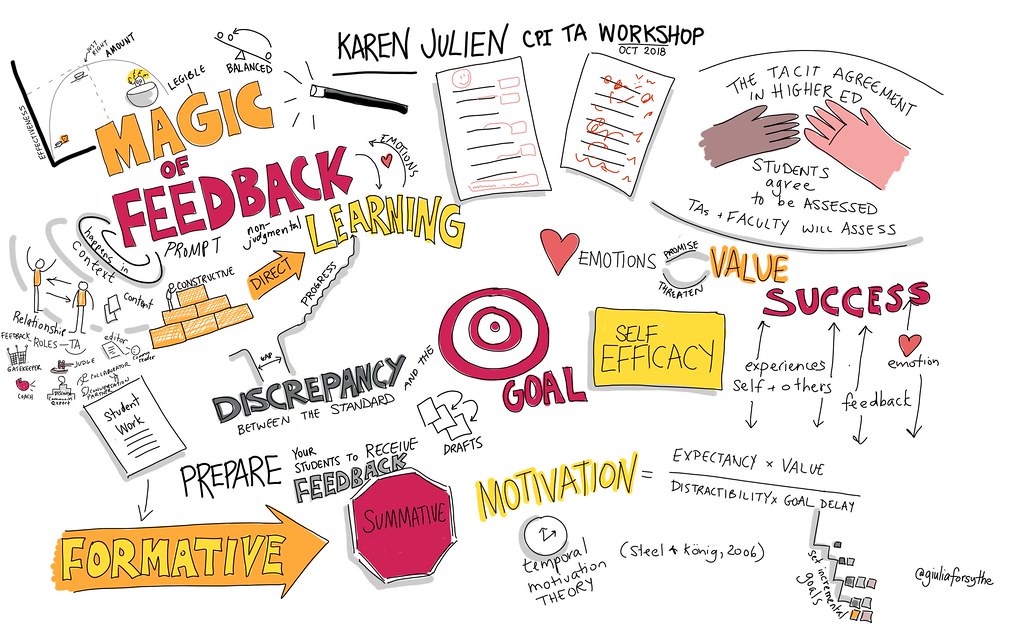 KAREN JULIEN CPI TA WORKSHOP
OCT 2018
EFFECTIVENESS
JUST RIGHT
AMOUNT
LEGIBLE
BALANCED
MAGIC
OF
FEEDBACK
LEARNING
EMOTIONS
PROMPT
non-
judgmental
happens in
context
DIRECT
CONSTRUCTIVE
PROGRESS
Content
Relationship
FEEDBACK
ROLES - TA
GATEKEEPER
JUDGE
editor
COLLABORATOR
COACH
expert
CONVERSATION
PARTNER
Student
Work
GAP
DISCREPANCY
BETWEEN THE STANDARD
AND THE
GOAL
DRAFTS
THE TACIT AGREEMENT
IN HIGHER ED
STUDENTS
agree
to be ASSESSED
TAs + FACULTY WILL ASSESS
EMOTIONS
PROMISE
THREATEN
VALUE
SUCCESS
SELF
EFFICACY
experiences
self + others
feedback
emotion
PREPARE
YOUR
STUDENTS TO RECEIVE
FEEDBACK
FORMATIVE
SUMMATIVE
MOTIVATION =
EXPECTANCY x VALUE
DISTRACTIBILITY x GOAL DELAY
temporal
motivation
THEORY
(Steel & König, 2006)
set incremental
goals
@giuliaforsythe